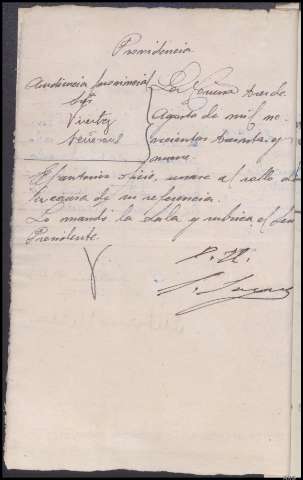 Providencia
Audiencia provincial
La Coruña tres de
Agosto de mil no-
vecientos treinta y
nueve.
El anterior oficio, unase al rollo de
la causa de su referencia.
Lo mandó la Sala y rubrica el Señor
Presidente.